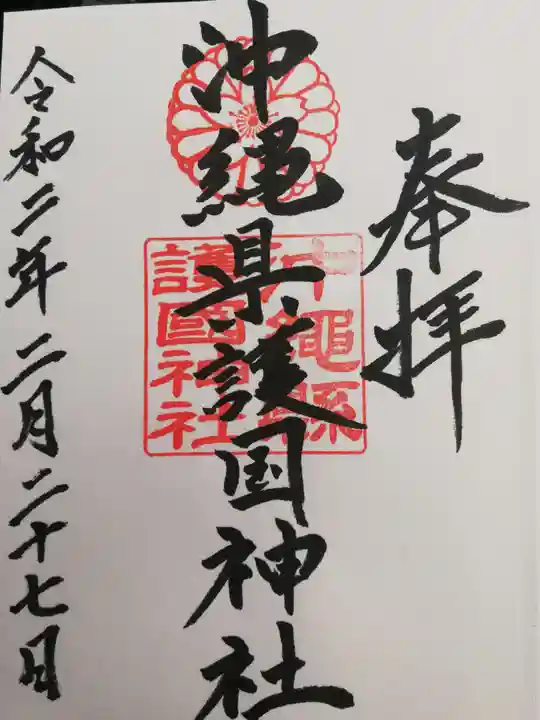 奉拝
沖縄県護国神社
沖繩縣
護國神社
令和二年二月二十七日